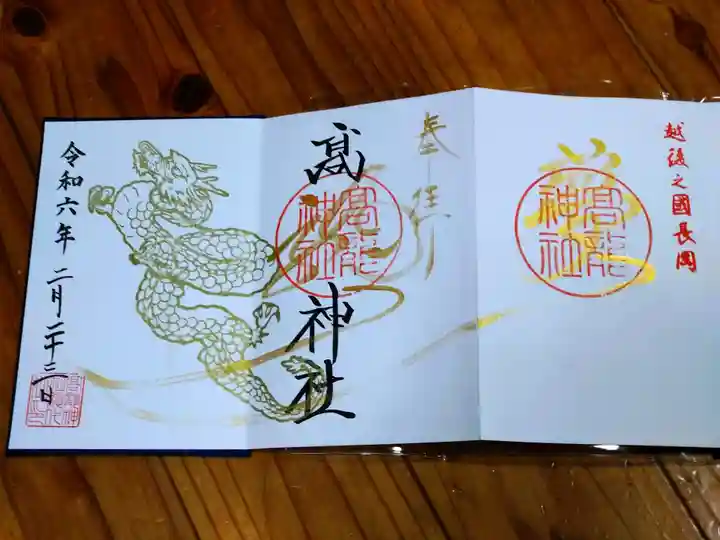 越後之國長岡
髙龍
神社
奉拝
髙 神社
髙龍
神社
令和六年 二月二十三日